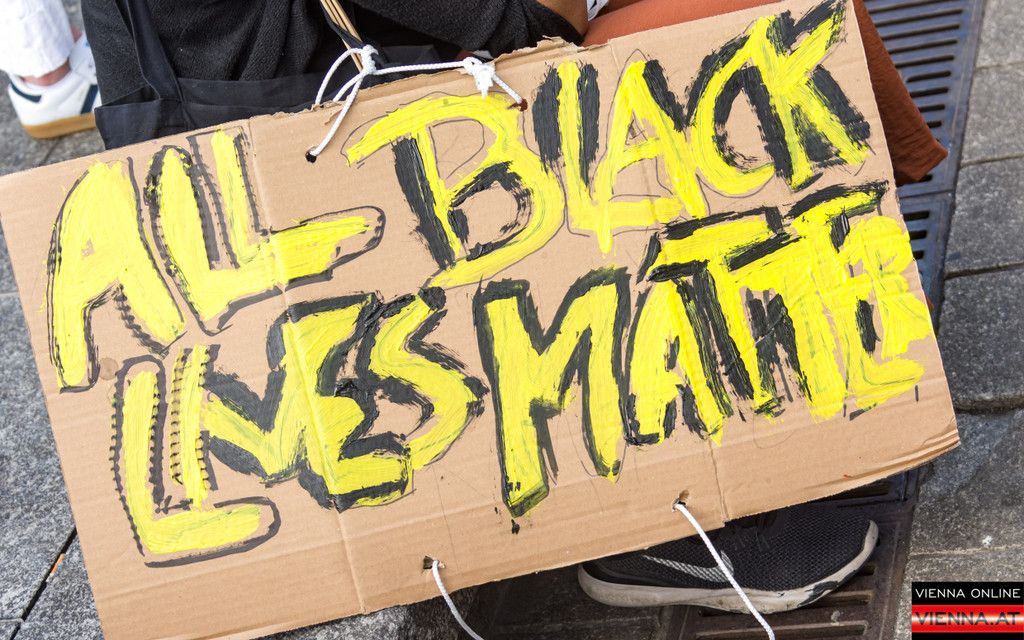 ALL BLACK
LIVES MATTER
VIENNA ONLINE
VIENNA.AT